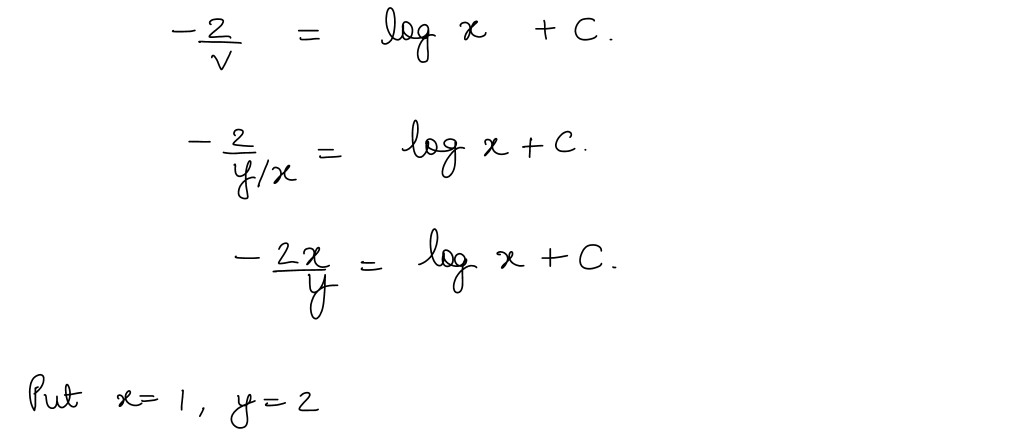 -2/v = log x + C.
-2/(y/x) = log x + C.
-2x/y = log x + C.
Put x=1, y=2